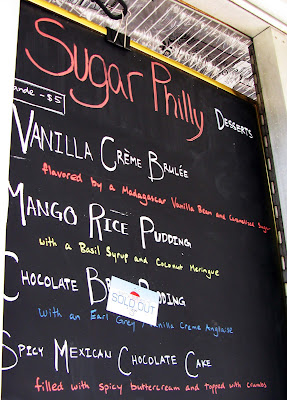 Sugar Philly
DESSERTS
ande - $5
VANILLA CRÈME BRULÉE
flavored by a Madagascar Vanilla Bean and Caramelized Sugar
MANGO RICE PUDDING
with a Basil Syrup and Coconut Meringue
CHOCOLATE PUDDING
SOLD OUT
with an Earl Grey Vanilla Creme Anglaise
SPICY MEXICAN CHOCOLATE CAKE
filled with spicy buttercream and topped with crumbs